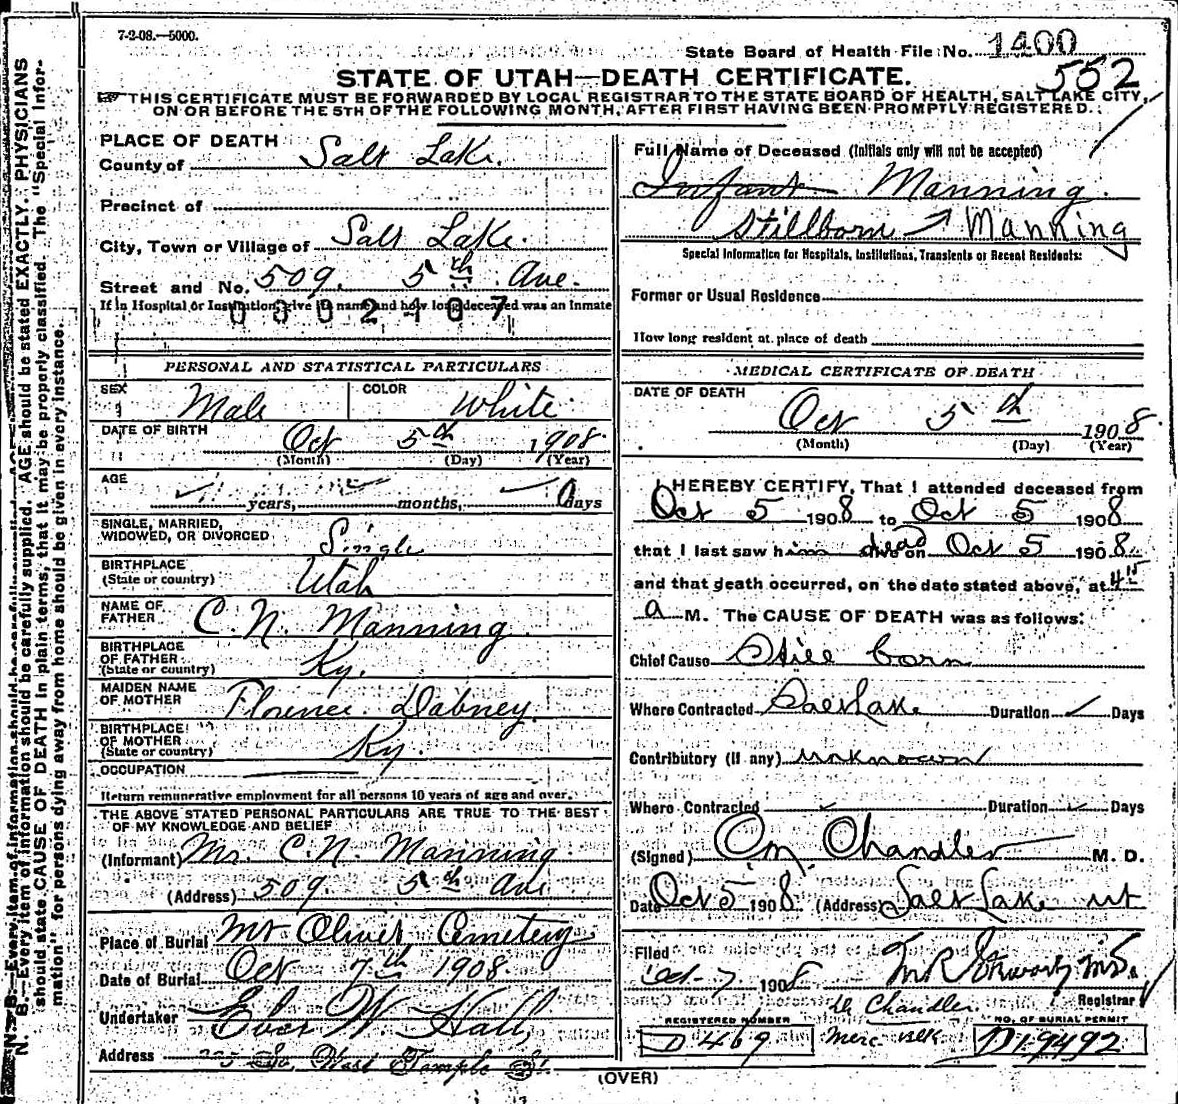 7-2-08.—5000.
State Board of Health File No. 1400
552
STATE OF UTAH—DEATH CERTIFICATE.
THIS CERTIFICATE MUST BE FORWARDED BY LOCAL REGISTRAR TO THE STATE BOARD OF HEALTH, SALT LAKE CITY,
ON OR BEFORE THE 5TH OF THE FOLLOWING MONTH, AFTER FIRST HAVING BEEN PROMPTLY REGISTERED.
PLACE OF DEATH
County of Salt Lake.
Precinct of
City, Town or Village of Salt Lake.
Street and No. 509. 5th Ave.
If in Hospital or Institution, give its name and how long deceased was an inmate
0302407
PERSONAL AND STATISTICAL PARTICULARS
SEX Male COLOR White
DATE OF BIRTH Oct 5th 1908.
(Month) (Day) (Year)
AGE years, months, 0 days
SINGLE, MARRIED,
WIDOWED, OR DIVORCED Single
BIRTHPLACE
(State or country) Utah
NAME OF
FATHER C. N. Manning
BIRTHPLACE
OF FATHER
(State or country) Ky.
MAIDEN NAME
OF MOTHER Florence Dabney
BIRTHPLACE
OF MOTHER
(State or country) Ky
OCCUPATION
Return remunerative employment for all persons 10 years of age and over.
THE ABOVE STATED PERSONAL PARTICULARS ARE TRUE TO THE BEST
OF MY KNOWLEDGE AND BELIEF
(Informant) Mr. C. N. Manning
(Address) 509. 5th Ave
Place of Burial Mt Olivet Cemetery
Date of Burial Oct 7th 1908.
Undertaker Eber W. Hall,
Address So, West Temple St.
Full Name of Deceased (Initials only will not be accepted)
Infant Manning.
Stillborn Manning
Special Information for Hospitals, Institutions, Transients or Recent Residents:
Former or Usual Residence
How long resident at place of death
MEDICAL CERTIFICATE OF DEATH
DATE OF DEATH
Oct 5th 1908.
(Month) (Day) (Year)
I HEREBY CERTIFY, That I attended deceased from
Oct 5 1908 to Oct 5 1908
that I last saw him dead alive on Oct 5 1908.
and that death occurred, on the date stated above, at 4 15
a M. The CAUSE OF DEATH was as follows:
Chief Cause Still born
Where Contracted Salt Lake Duration Days
Contributory (if any) unknown
Where Contracted Duration Days
(Signed) Chandler M. D.
Date Oct 5 1908. (Address) Salt Lake ut
Filed
Oct 7 1908 M.D.
Registrar
Dr Chandler.
REGISTERED NUMBER NO. OF BURIAL PERMIT
D 469 Merc. Blk D19492
(OVER)
N. B.—Every item of information should be carefully supplied. AGE should be stated EXACTLY. PHYSICIANS
should state CAUSE OF DEATH in plain terms, that it may be properly classified. The "Special Infor-
mation" for persons dying away from home should be given in every instance.